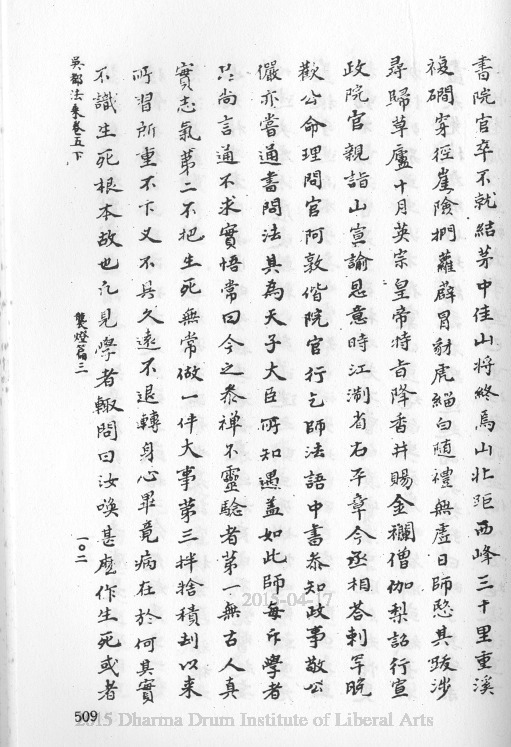 書院官卒不就結茅中佳山將終焉山北距西峰三十里重溪
複磵穿徑崖險捫蘿薜冒豺虎緇白隨禮無虛日師愍其跋涉
尋歸草廬十月英宗皇帝特旨降香并賜金襴僧伽梨詔行宣
政院官親詣山宣諭恩意時江淛省右平章今丞相荅剌罕脫
歡公命理問官阿敦偕院官行乞師法語中書叅知政事敬公
儼亦嘗通書問法其為天子大臣所知遇蓋如此師每斥學者
只尚言通不求實悟常曰今之叅禪不靈驗者第一無古人真
實志氣第二不把生死無常做一件大事第三拌捨積刦以來
所習所重不下又不具久遠不退轉身心畢竟病在於何其實
不識生死根本故也凢見學者輙問曰汝喚甚麼作生死或者
吳都法乘卷五下
龑燈篇三
一〇二
509
2015-04-17
2015 Dharma Drum Institute of Liberal Arts